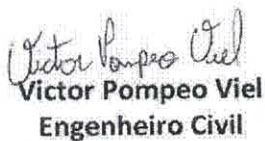 Victor Pompeo Viel
Victor Pompeo Viel
Engenheiro Civil